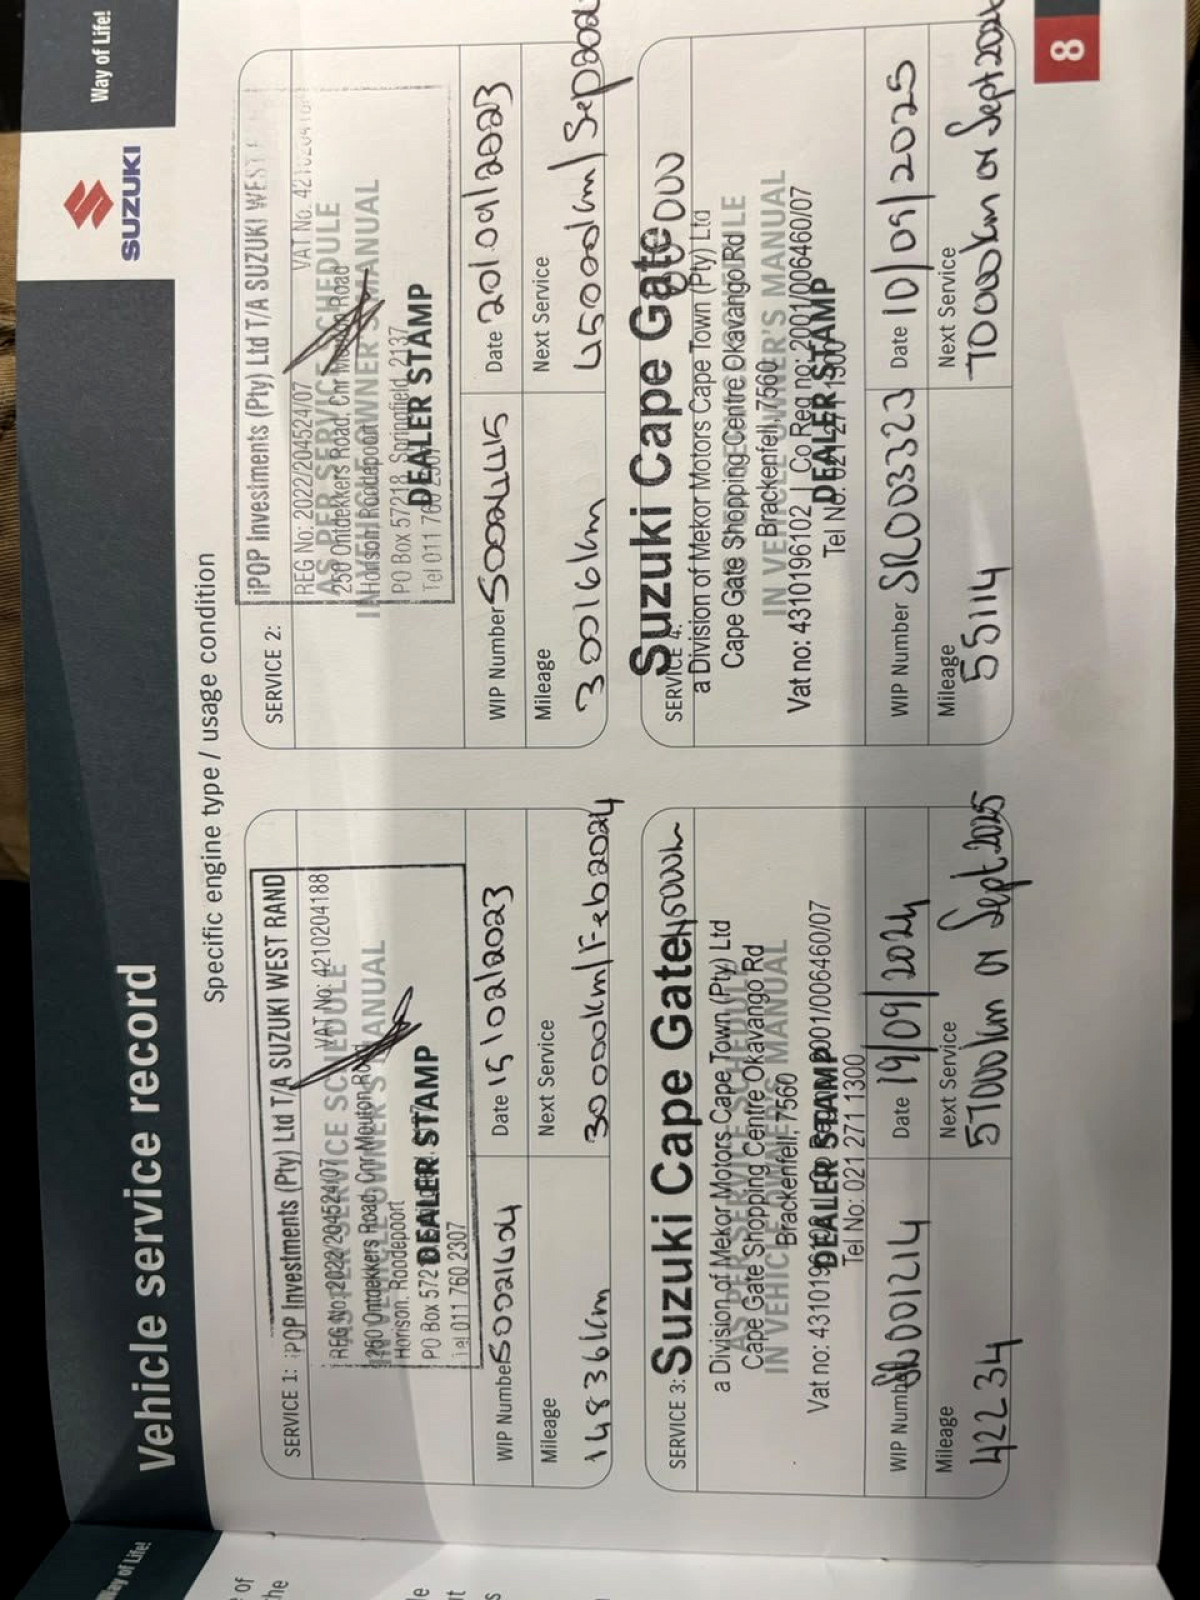 Way of Life!
SUZUKI
Vehicle service record
Specific engine type / usage condition
SERVICE 1:
iPOP Investments (Pty) Ltd T/A SUZUKI WEST RAND
REG No: 2022/204524/07 VAT No: 4210204188
AS PER SERVICE SCHEDULE
250 Ontdekkers Road, Cnr Mouton Road
IN VEHICLE OWNER'S MANUAL
Horison, Roodepoort
PO Box 572
DEALER STAMP
Tel 011 760 2307
WIP Number
Date 15/02/2023
Mileage
14836km
Next Service
30000km/Feb2024
SERVICE 2:
iPOP Investments (Pty) Ltd T/A SUZUKI WEST
REG No: 2022/204524/07 VAT No:
AS PER SERVICE SCHEDULE
250 Ontdekkers Road, Cnr Mouton Road
IN VEHICLE OWNER'S MANUAL
Horison, Roodepoort
PO Box 57218, Springfield, 2137
DEALER STAMP
Tel 011 760
WIP Number
Date
Mileage
30016km
Next Service
45000km/
SERVICE 3:
Suzuki Cape Gate
a Division of Mekor Motors Cape Town (Pty) Ltd
AS PER SERVICE SCHEDULE
Cape Gate Shopping Centre Okavango Rd
IN VEHICLE OWNER'S MANUAL
Brackenfell, 7560
Vat no:
DEALER STAMP
Tel No: 021 271 1300
WIP Number
Date 19/09/2024
Mileage
42234
Next Service
57000km or Sept 2025
SERVICE 4:
Suzuki Cape Gate
a Division of Mekor Motors Cape Town (Pty) Ltd
Cape Gate Shopping Centre Okavango Rd
Brackenfell, 7560
IN VEHICLE OWNER'S MANUAL
Vat no: 4310196102 | Co Reg no: 2001/006460/07
DEALER STAMP
Tel No: 021 271 1300
WIP Number SR003323
Date 10/09/2025
Mileage
55114
Next Service
70000km or Sept
8